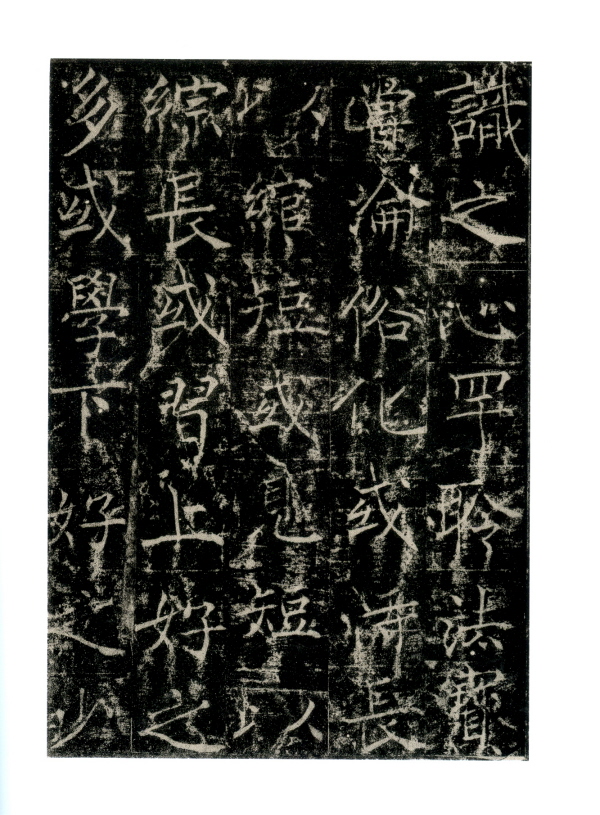 識之心罕聆法寶
淪俗化或長
以綰短或忌短以
綜長或習上好之
多或學下好之少